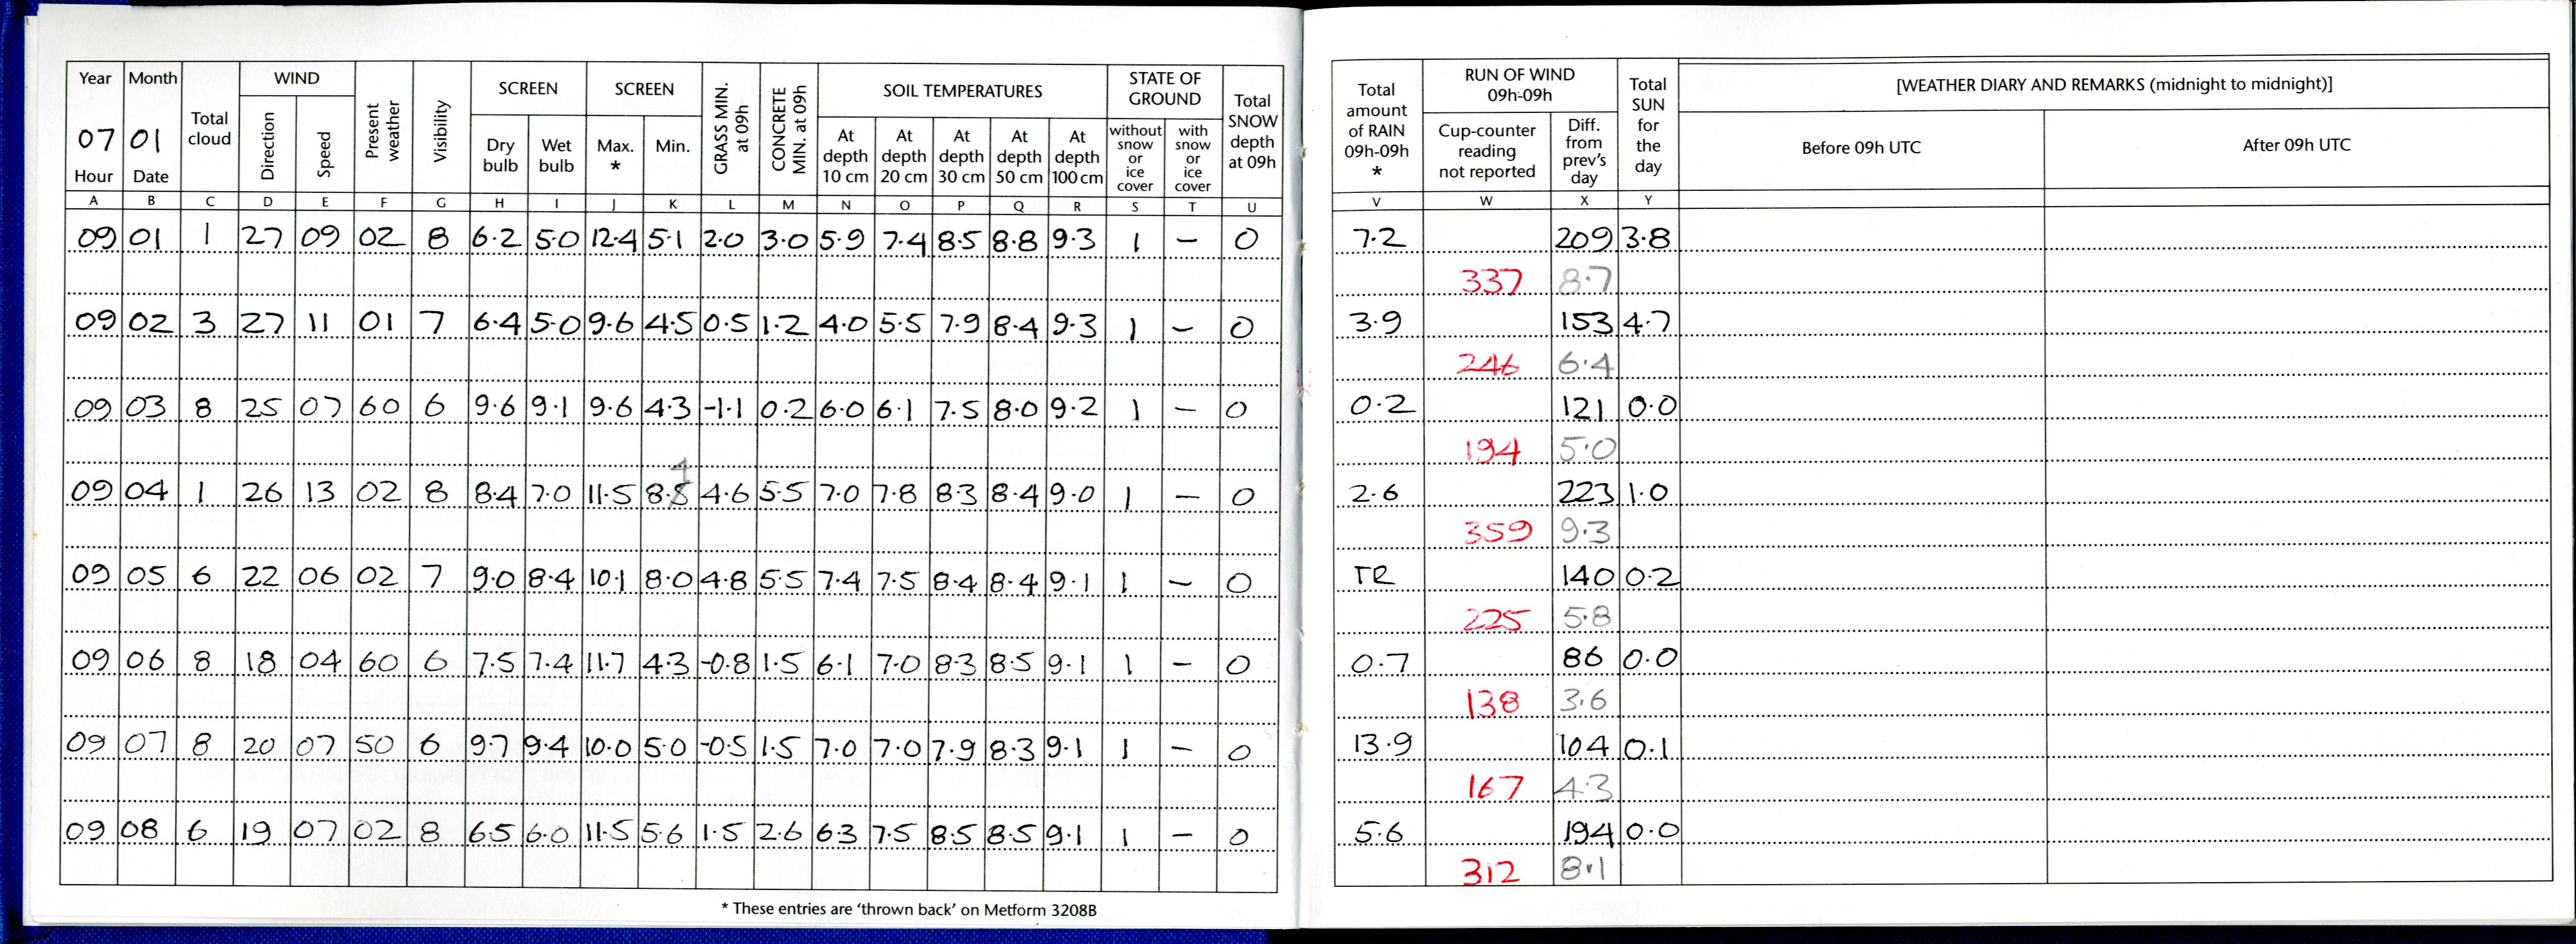 Year Month Total cloud WIND Present weather Visibility SCREEN SCREEN GRASS MIN. at 09h CONCRETE MIN. at 09h SOIL TEMPERATURES STATE OF GROUND Total SNOW depth at 09h Total amount of RAIN 09h-09h * RUN OF WIND 09h-09h Total SUN for the day [WEATHER DIARY AND REMARKS (midnight to midnight)]
07 01 Direction Speed Dry bulb Wet bulb Max. * Min. At depth 10 cm At depth 20 cm At depth 30 cm At depth 50 cm At depth 100 cm without snow or ice cover with snow or ice cover Cup-counter reading not reported Diff. from prev's day Before 09h UTC After 09h UTC
Hour Date
A B C D E F G H I J K L M N O P Q R S T U V W X Y
09 01 1 27 09 02 8 6.2 5.0 12.4 5.1 2.0 3.0 5.9 7.4 8.5 8.8 9.3 1 – 0 7.2 209 3.8
337 8.7
09 02 3 27 11 01 7 6.4 5.0 9.6 4.5 0.5 1.2 4.0 5.5 7.9 8.4 9.3 1 – 0 3.9 153 4.7
246 6.4
09 03 8 25 07 60 6 9.6 9.1 9.6 4.3 -1.1 0.2 6.0 6.1 7.5 8.0 9.2 1 – 0 0.2 121 0.0
194 5.0
4
09 04 1 26 13 02 8 8.4 7.0 11.5 8.5 4.6 5.5 7.0 7.8 8.3 8.4 9.0 1 – 0 2.6 223 1.0
359 9.3
09 05 6 22 06 02 7 9.0 8.4 10.1 8.0 4.8 5.5 7.4 7.5 8.4 8.4 9.1 1 – 0 TR 140 0.2
225 5.8
09 06 8 18 04 60 6 7.5 7.4 11.7 4.3 -0.8 1.5 6.1 7.0 8.3 8.5 9.1 1 – 0 0.7 86 0.0
138 3.6
09 07 8 20 07 50 6 9.7 9.4 10.0 5.0 -0.5 1.5 7.0 7.0 7.9 8.3 9.1 1 – 0 13.9 104 0.1
167 4.3
09 08 6 19 07 02 8 6.5 6.0 11.5 5.6 1.5 2.6 6.3 7.5 8.5 8.5 9.1 1 – 0 5.6 194 0.0
312 8.1
* These entries are 'thrown back' on Metform 3208B